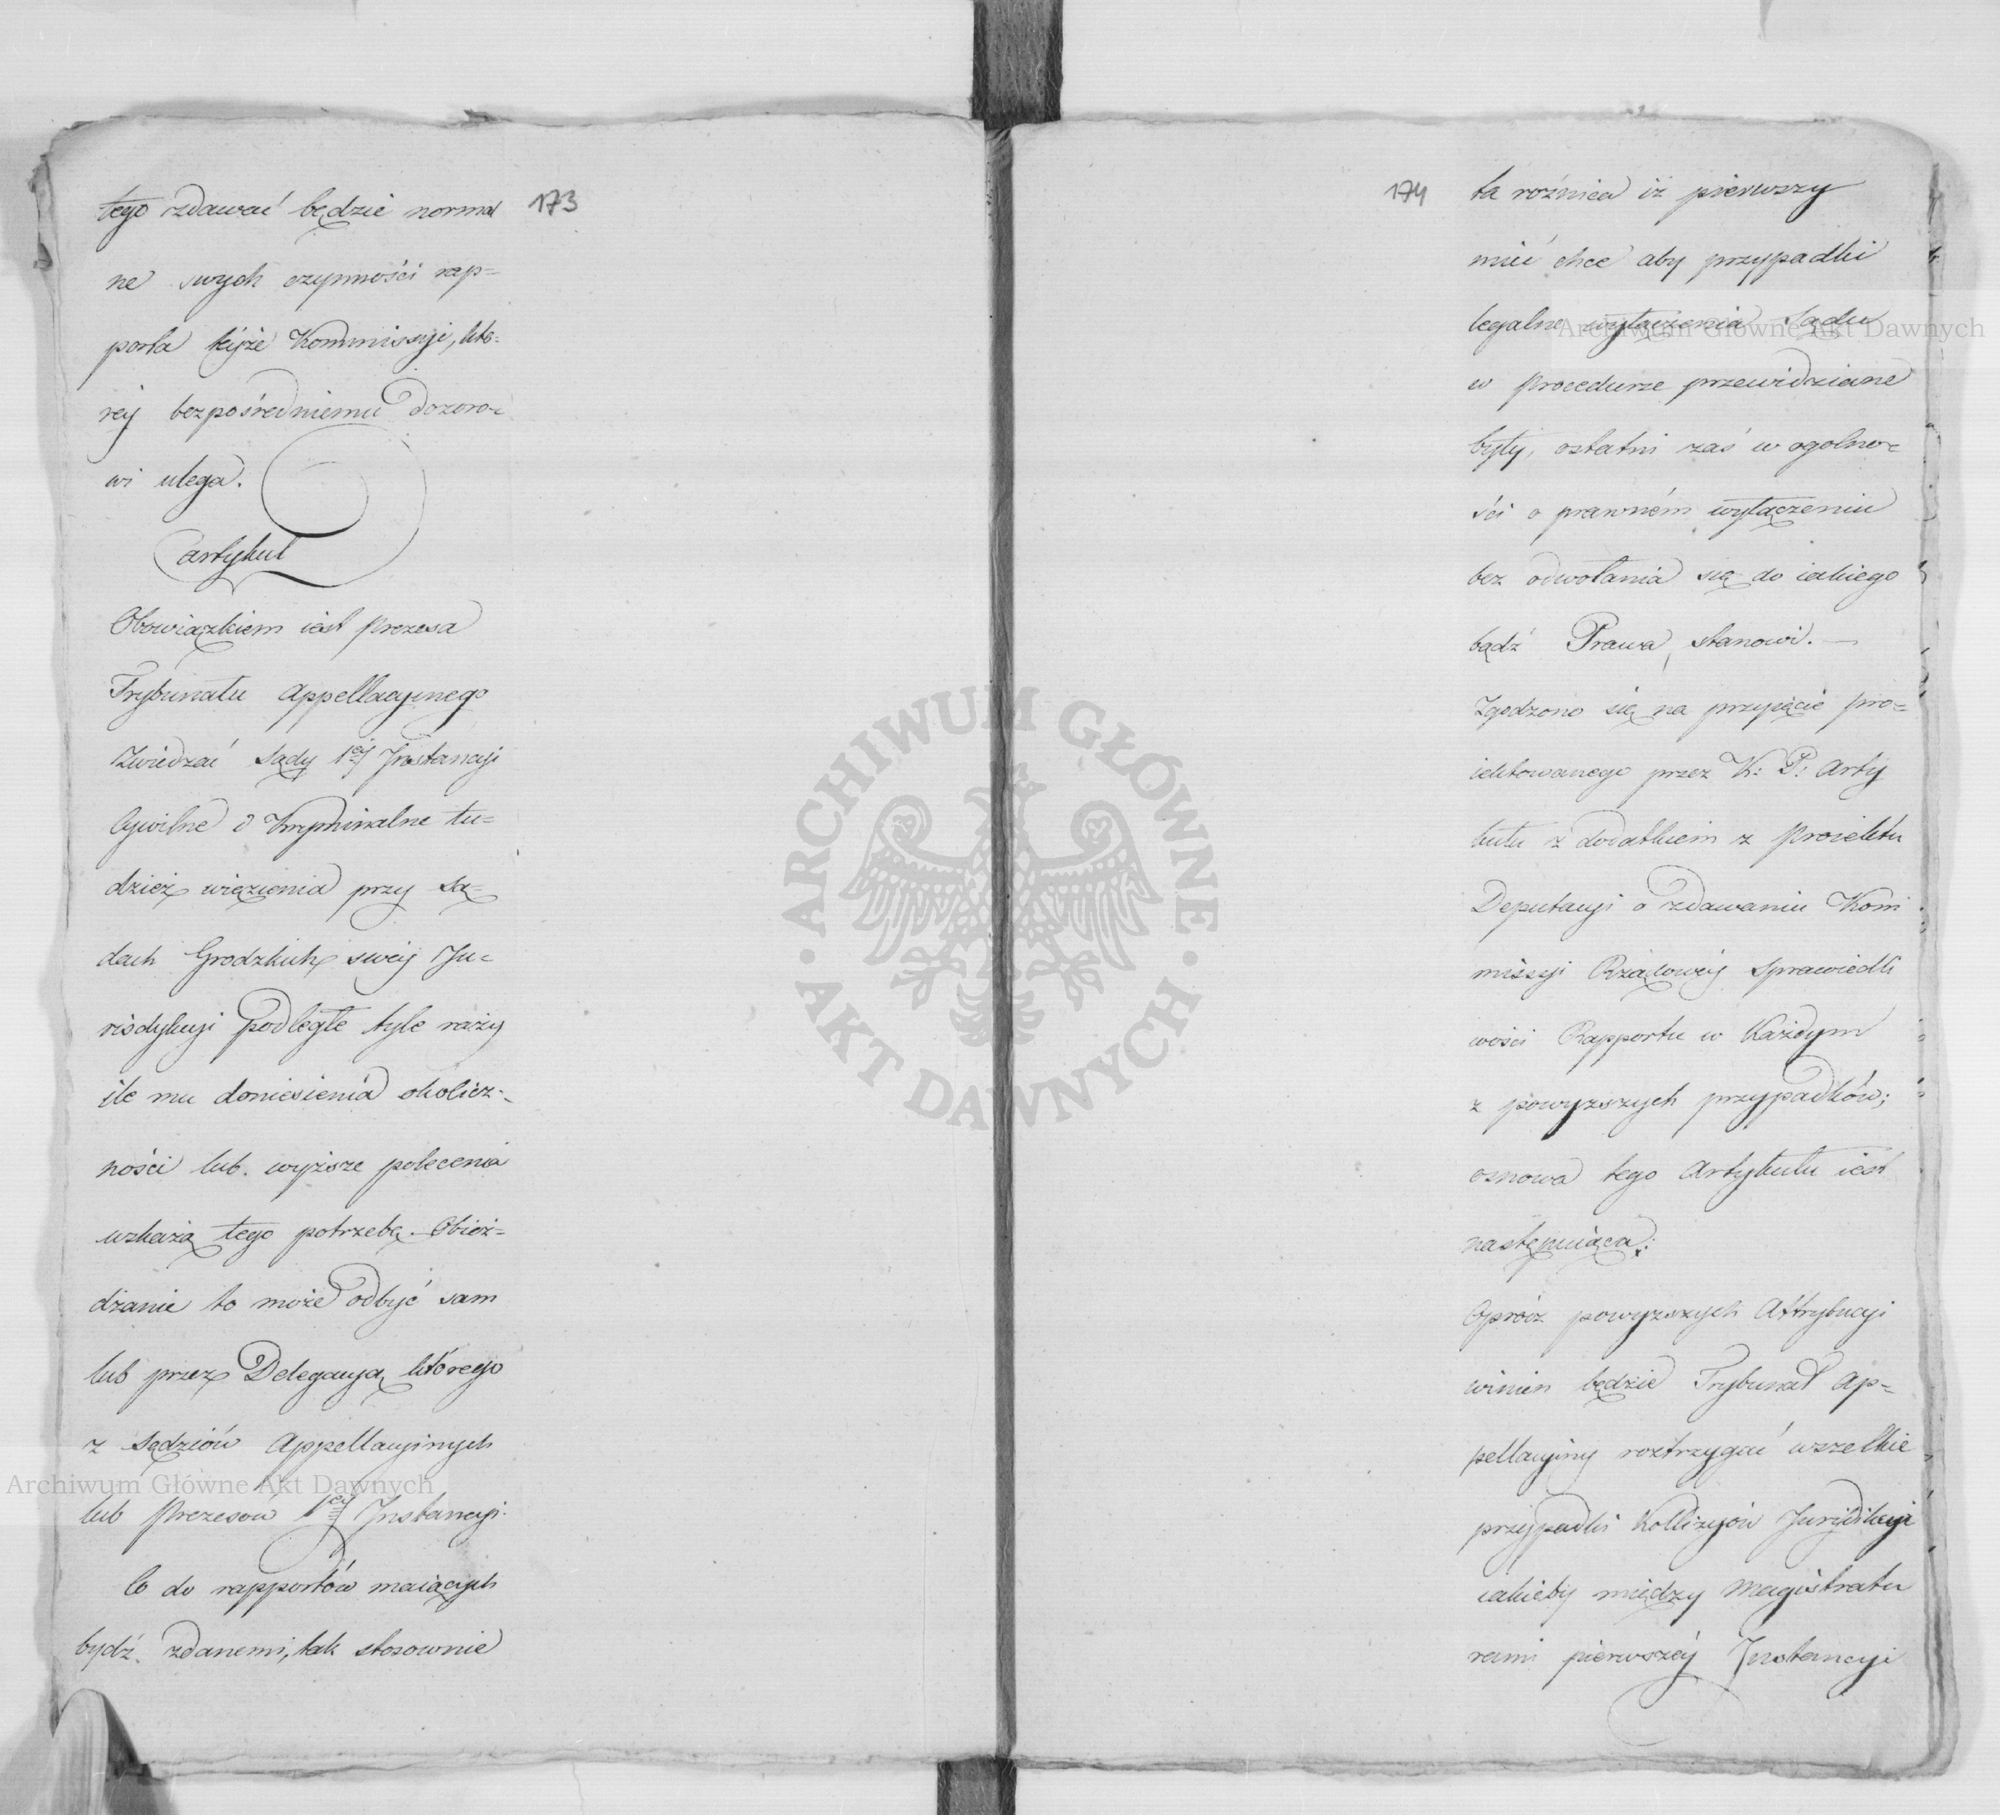 173
tego zdawać będzie normal
ne swych czynności rap=
porta téyże Kommissyi, któ=
réj bezpośredniemu dozoro=
wi ulega.
Artykuł
Obowiązkiem iest Prezesa
Trybunału Appellacyinego
Zwiedzać Sądy 1éj Instancyi
Cywilne i Kryminalne tu=
dzież więzienia przy Są=
dach Grodzkich swéj Ju=
risdykcyi podległe tyle razy
ile mu doniesienia okolicz=
ności lub wyższe polecenia
wskażą tego potrzebę. Obież=
dżanie to może odbyć sam
lub przez Delegacyą którego
z Sędziów Appellacyinych
lub Prezesów 1éj Instancyi.
Co do rapportów maiących
bydź zdanemi, tak stosownie
174
ta roźnica iż pierwszy
mieć chce aby przypadki
legalne wyłączenia Sądu
w Procedurze przewidziane
były, ostatni zaś w ogolno=
ści o prawném wyłączeniu
bez odwołania się do iakiego
bądź Prawa, stanowi. —
Zgodzono się na przyięcie pro=
iektowanego przez K: P: Arty
kułu z dodatkiem z Proiektu
Deputacyi o zdawaniu Kom
missyi Rządowéj Sprawiedli
wości Rapportu w każdym
z powyższych przypadków;
osnowa tego Artykułu iest
następuiąca:
Oprócz powyższych Attrybucyi
winien będzie Trybunał Ap=
pellacyiny roztrzygać wszelkie
przypadki Kollizyów Juryzdikcyi
iakieby między Magistratu
rami pierwszéj Instancyi
Archiwum Główne Akt Dawnych
Archiwum Główne Akt Dawnych
ARCHIWUM GŁÓWNE · AKT DAWNYCH ·